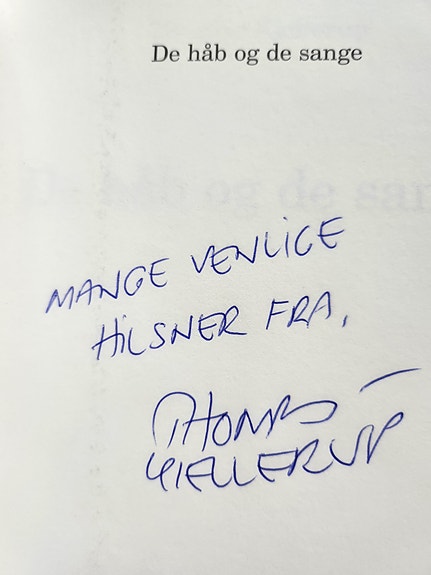 De håb og de sange
MANGE VENLIGE
HILSNER FRA,
THOMAS
GJELLERUP